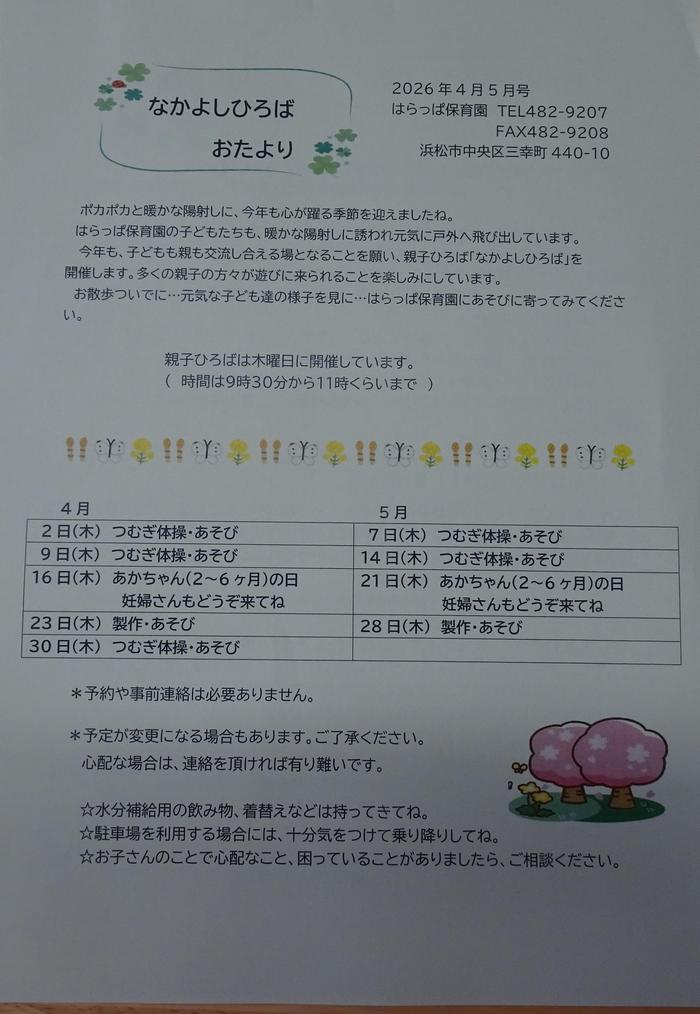 なかよしひろば
おたより
2026年4月5月号
はらっぱ保育園 TEL482-9207
FAX482-9208
浜松市中央区三幸町 440-10
ポカポカと暖かな陽射しに、今年も心が躍る季節を迎えましたね。
はらっぱ保育園の子どもたちも、暖かな陽射しに誘われ元気に戸外へ飛び出しています。
今年も、子どもも親も交流し合える場となることを願い、親子ひろば「なかよしひろば」を
開催します。多くの親子の方々が遊びに来られることを楽しみにしています。
お散歩ついでに…元気な子ども達の様子を見に…はらっぱ保育園にあそびに寄ってみてくださ
い。
親子ひろばは木曜日に開催しています。
( 時間は9時30分から11時くらいまで )
4月
2日(木) つむぎ体操・あそび
9日(木) つむぎ体操・あそび
16日(木) あかちゃん(2~6ヶ月)の日
妊婦さんもどうぞ来てね
23日(木) 製作・あそび
30日(木) つむぎ体操・あそび
5月
7日(木) つむぎ体操・あそび
14日(木) つむぎ体操・あそび
21日(木) あかちゃん(2~6ヶ月)の日
妊婦さんもどうぞ来てね
28日(木) 製作・あそび
*予約や事前連絡は必要ありません。
*予定が変更になる場合もあります。ご了承ください。
心配な場合は、連絡を頂ければ有り難いです。
☆水分補給用の飲み物、着替えなどは持ってきてね。
☆駐車場を利用する場合には、十分気をつけて乗り降りしてね。
☆お子さんのことで心配なこと、困っていることがありましたら、ご相談ください。